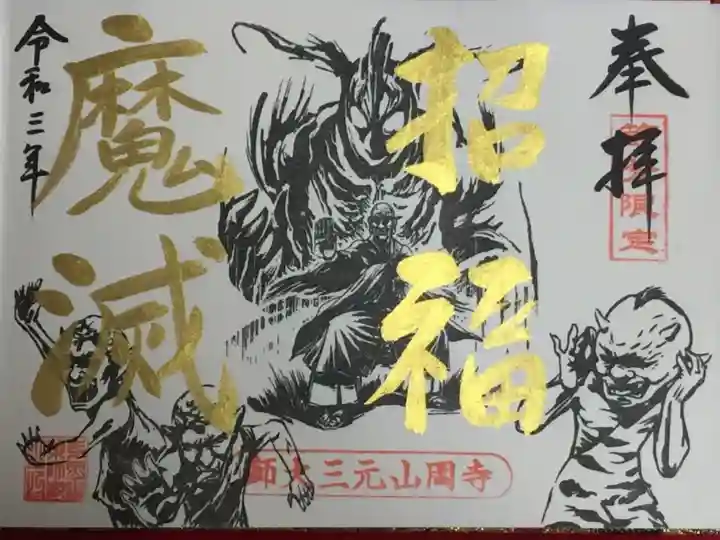 奉拝
限定
招福
魔滅
令和三年
師大三元山圓寺